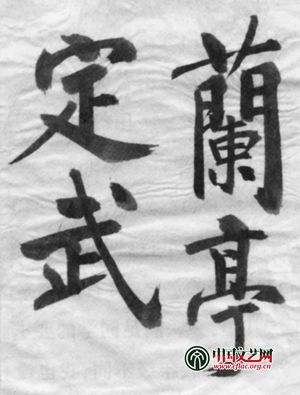 蘭亭
定武
中国文艺网
www.cflac.org.cn